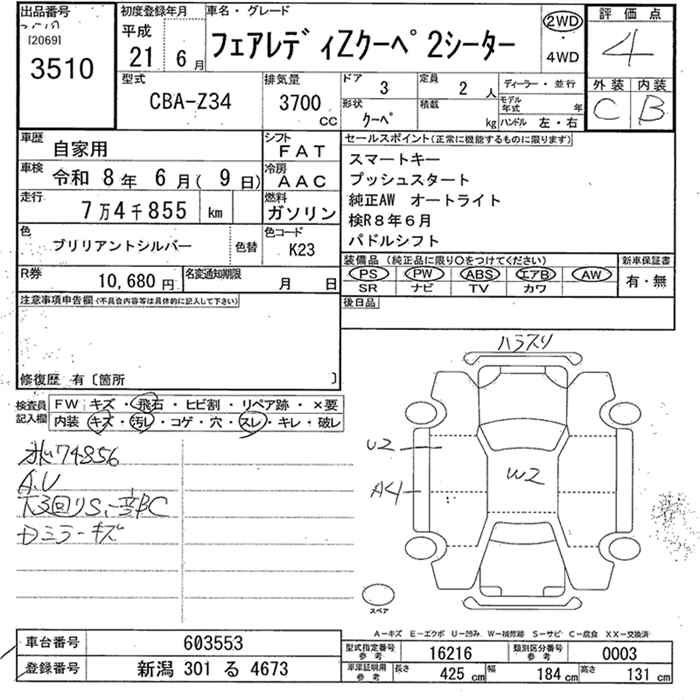 出品番号
[2069]
3510
初度登録年月
平成
21 6 月
車名・グレード
フェアレディZクーペ 2シーター
2WD
・
4WD
評価点
4
外装 内装
C B
型式
CBA-Z34
排気量
3700
CC
ドア
3
形状
クーペ
定員
2 人
積載
kg
ディーラー・並行
モデル年式 年
ハンドル 左・右
車歴
自家用
車検
令和 8年 6月( 9日)
走行
7万4千855 km
色
ブリリアントシルバー
色替
シフト
FAT
冷房
AAC
燃料
ガソリン
色コード
K23
R券
10,680 円
名変通知期限
月 日
セールスポイント(正常に機能するものに限ります)
スマートキー
プッシュスタート
純正AW オートライト
検R8年6月
パドルシフト
装備品 (純正品に限り○をつけてください)
PS PW ABS エアB AW
SR ナビ TV カワ
新車保証書
有・無
後日品
注意事項申告欄(不具合内容等は具体的に記入して下さい)
修復歴 有〔箇所 〕
検査員
記入欄
FW キズ ・ 飛石 ・ ヒビ割 ・ リペア跡 ・ ×要
内装 キズ ・ 汚レ ・ コゲ ・ 穴 ・ スレ ・ キレ ・ 破レ
74856
A.U
Dミラーキズ
ハラスリ
U2
W2
A4
スペア
A-キズ E-エクボ U-凹み W-補修跡 S-サビ C-腐食 XX-交換済
車台番号
603553
登録番号
新潟 301 る 4673
型式指定番号
参考
16216
類別区分番号
参考
0003
車庫証明用
参考
長さ 425 cm 幅 184 cm 高さ 131 cm